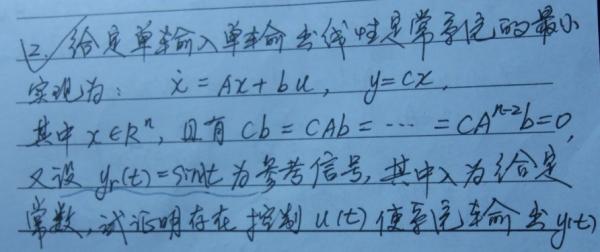 12、给定单输入单输出线性定常系统的最小
实现为: ẋ = Ax + bu, y = cx,
其中 x∈Rⁿ, 且有 cb = cAb = ⋯ = cAⁿ⁻²b = 0,
又设 yᵣ(t) = sinλt 为参考信号, 其中 λ 为给定
常数, 试证明存在控制 u(t) 使系统输出 y(t)